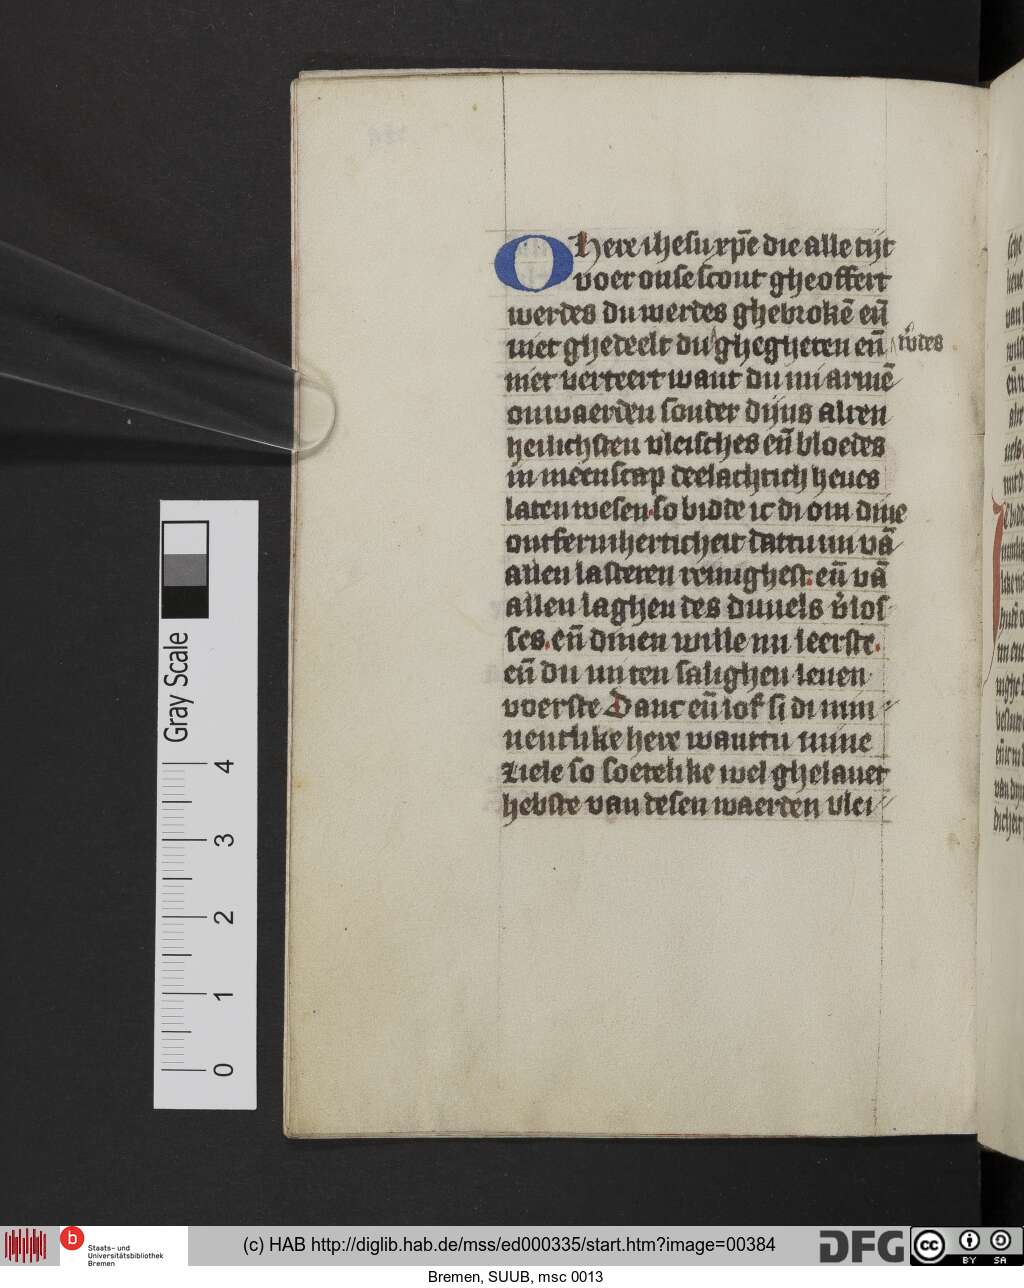 O here ihesu xp̄e die alle tijt
voer onse scout gheoffert
werdes du werdes ghebrokē en̄
niet ghedeelt du ghegheten en̄ ^ w̓des
niet verteert want du mi armē
onwaerden sonder dijns alren
heilichsten vleisches en̄ bloedes
in meenscap deelachtich heues
laten wesen. so bidde ic di om dine
ontfermherticheit dattu mi vā
allen lasteren reinighest. en̄ vā
allen laghen des duuels v̓los
ses. en̄ dinen wille mi leerste.
en̄ du mi ten salighen leuen
voerste Danc en̄ lof si di min
nentlike here wanttu mine
ziele so soetelike wel ghelauet
hebste van desen waerden vlei
Gray Scale
4
3
2
1
0
b
Staats- und
Universitätsbibliothek
Bremen
(c) HAB http://diglib.hab.de/mss/ed000335/start.htm?image=00384
DFG
cc
BY SA
Bremen, SUUB, msc 0013